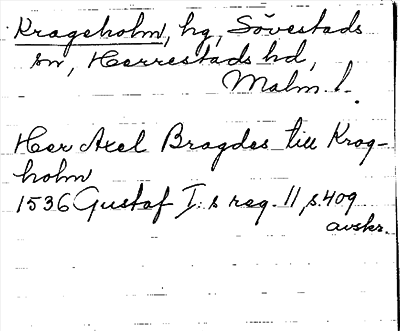 Krageholm, hg, Sövestads
sn, Herrestads hd,
Malm. l.
Her Axel Bragdes till Krog-
holm
1536 Gustaf I:s reg. 11, s. 409
avskr.